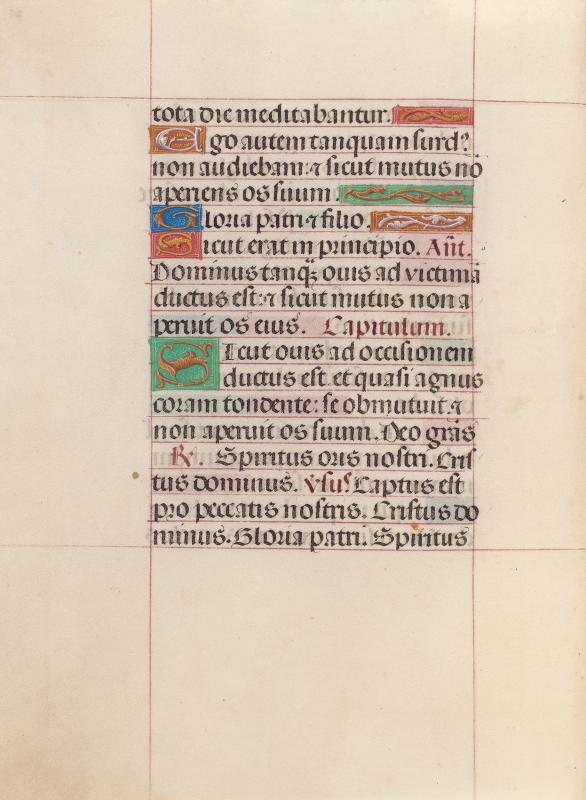 tota die meditabantur.
Ego autem tanquam surd⁹
non audiebam: ⁊ sicut mutus nō
aperiens os suum.
Gloria patri ⁊ filio.
Sicut erat in principio. An̄t.
Dominus tanqȝ ouis ad victimā
ductus est: ⁊ sicut mutus non a
peruit os eius. Capitulum.
Sicut ouis ad occisionem
ductus est et quasi agnus
coram tondente: se obmutuit ⁊
non aperuit os suum. Deo gr̄as
℟. Spiritus oris nostri. Cris
tus dominus. Vsus. Captus est
pro peccatis nostris. Cristus do
minus. Gloria patri. Spiritus